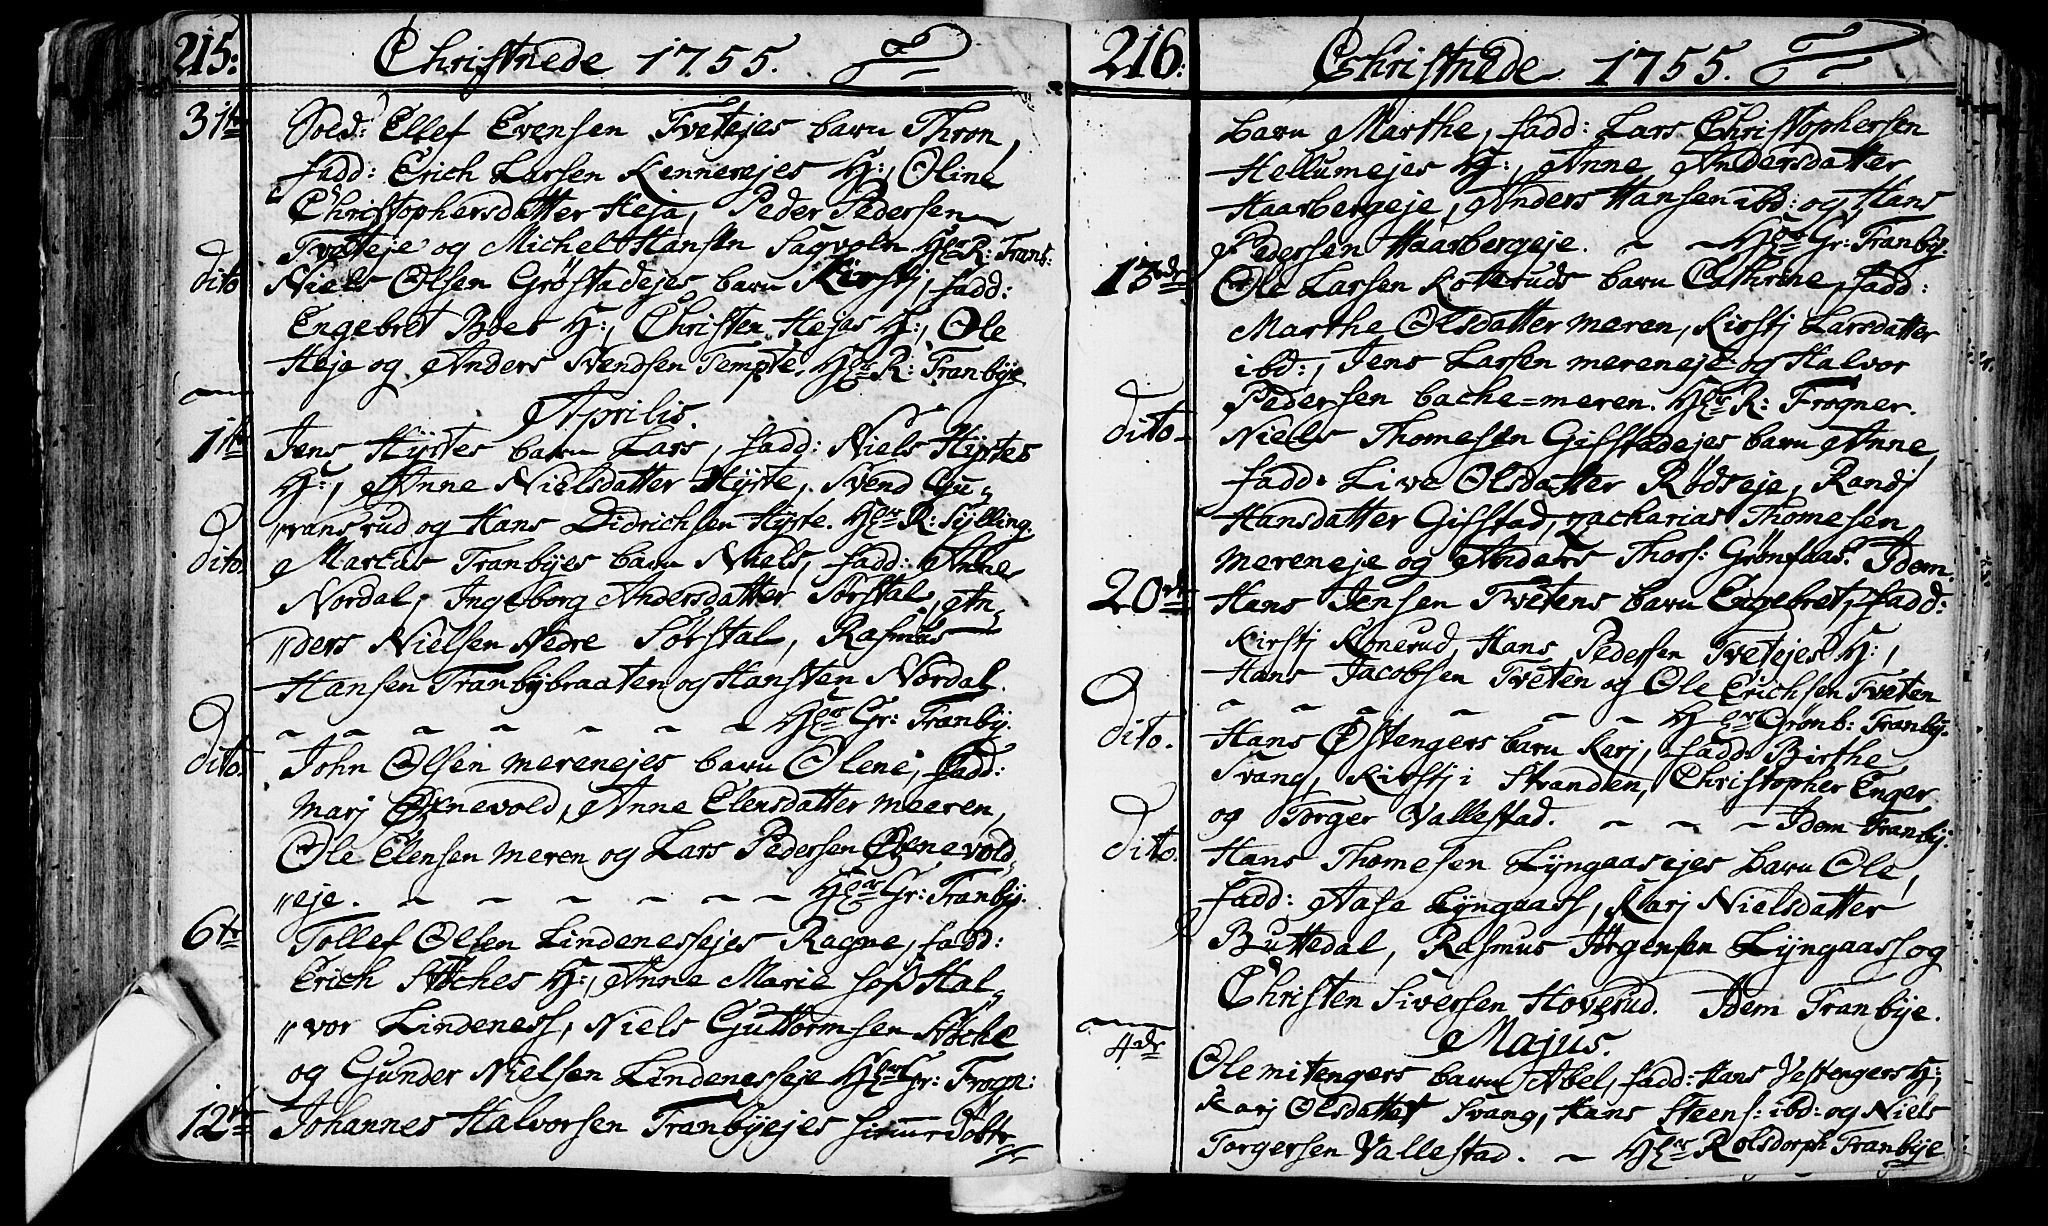 215:
Christnede 1755.
31te Sold: Ellef Evensen Tvetejes barn Thron,
fadd: Erich Larsen Kennerejes H:, Oline
Christophersdatter Heja, Peder Pedersen
Tveteje og Michel Hansen Sagvoln Hr R: Tranb:
dito Niels Olsen Grøstadejes barn Kirstj, fadd:
Engebret Boes H:, Christen Hejes H:, Ole
Heja og Anders Svendsen Tempte. Hr R: Tranbÿe
Aprilis.
1te Jens Hÿrtes barn Lars, fadd: Niels Hÿrtes
H:, Anne Nielsdatter Hÿrte, Svend Gu-
"ransrud og Hans Didrichsen Hÿrte. Hr R: Sÿlling.
dito. Marcus Tranbÿes barn Niels, fadd: Anne
Nordal, Ingeborg Andersdatter Sørstal, An-
"ders Nielsen Nedre Sørstal, Rasmus
Hansen Tranbÿbraaten og Hansten Nordal.
~ ~ ~ ~ ~ ~ ~ Hr Gr: Tranbÿ.
dito. John Olsen merenejes barn Olene, fadd:
Marj Ovnevold, Anne Elensdatter meeren,
Ole Elensen meren og Lars Pedersen Ovnevold-
"eje. ~ ~ ~ ~ ~ ~ Hr Gr: Tranbÿ.
6te Tollef Olsen Lindenessejes Ragne, fadd:
Erich Støches H:, Anne Marie hos Hal-
"vor Lindeness, Niels Guttormsen Støche
og Gunder Nielsen Lindenesseje Hr Gr: Frogn:
12te Johannes Halvorsen Tranbÿejes hiemedøbte
216:
Christnede 1755.
barn Marthe, fadd: Lars Christophersen
Hellumejes H:, Anne Andersdatter
Haarbergeje, Anders Hansen ibd: og Hans
Pedersen Haarbergeje. ~ ~ Hr Gr: Tranbÿ.
13de Ole Larsen Kotteruds barn Cathrine, fadd:
Marthe Olsdatter meren, Kirstj Larsdatter
ibd:, Jens Larsen mereneje og Halvor
Pedersen bache=meren. Hr R: Frogner.
dito- Niels Thomesen Gifstadejes barn Anne,
fadd: Live Olsdatter Rødseje, Randj
Hansdatter Gifstad, Zacharias Thomesen
mereneje og Anders Thors: Grønsaas. Idem.
20de Hans Jensen Tvetens barn Engebret, fadd:
Kirstj Konerud, Hans Pedersen Tvetejes H:,
Hans Jacobsen Tveten og Ole Erichsen Tveten
~ ~ ~ ~ ~ ~ Hr Grønb: Tranbÿ.
dito. Hans Østengers barn Karj, fadd: Birthe
Svang, Kirstj i Stranden, Christopher Enger
og Torger Vallestad. ~ ~ ~ Idem Tranbÿ.
dito. Hans Thomesen Lÿngaasejes barn Ole,
fadd: Aase Lÿngaass, Karj Nielsdatter
Buttedal, Rasmus Jørgensen Lÿngaass og
Christen Siversen Hoverud. Idem Tranbÿe.
Majus.
4de Ole mitengers barn Abel, fadd: Hans Vestengers H:,
Karj Olsdatter Svang, Hans Steens: ibd: og Niels
Torgersen Vallestad. ~ Hr Rolsdorph Tranbÿe